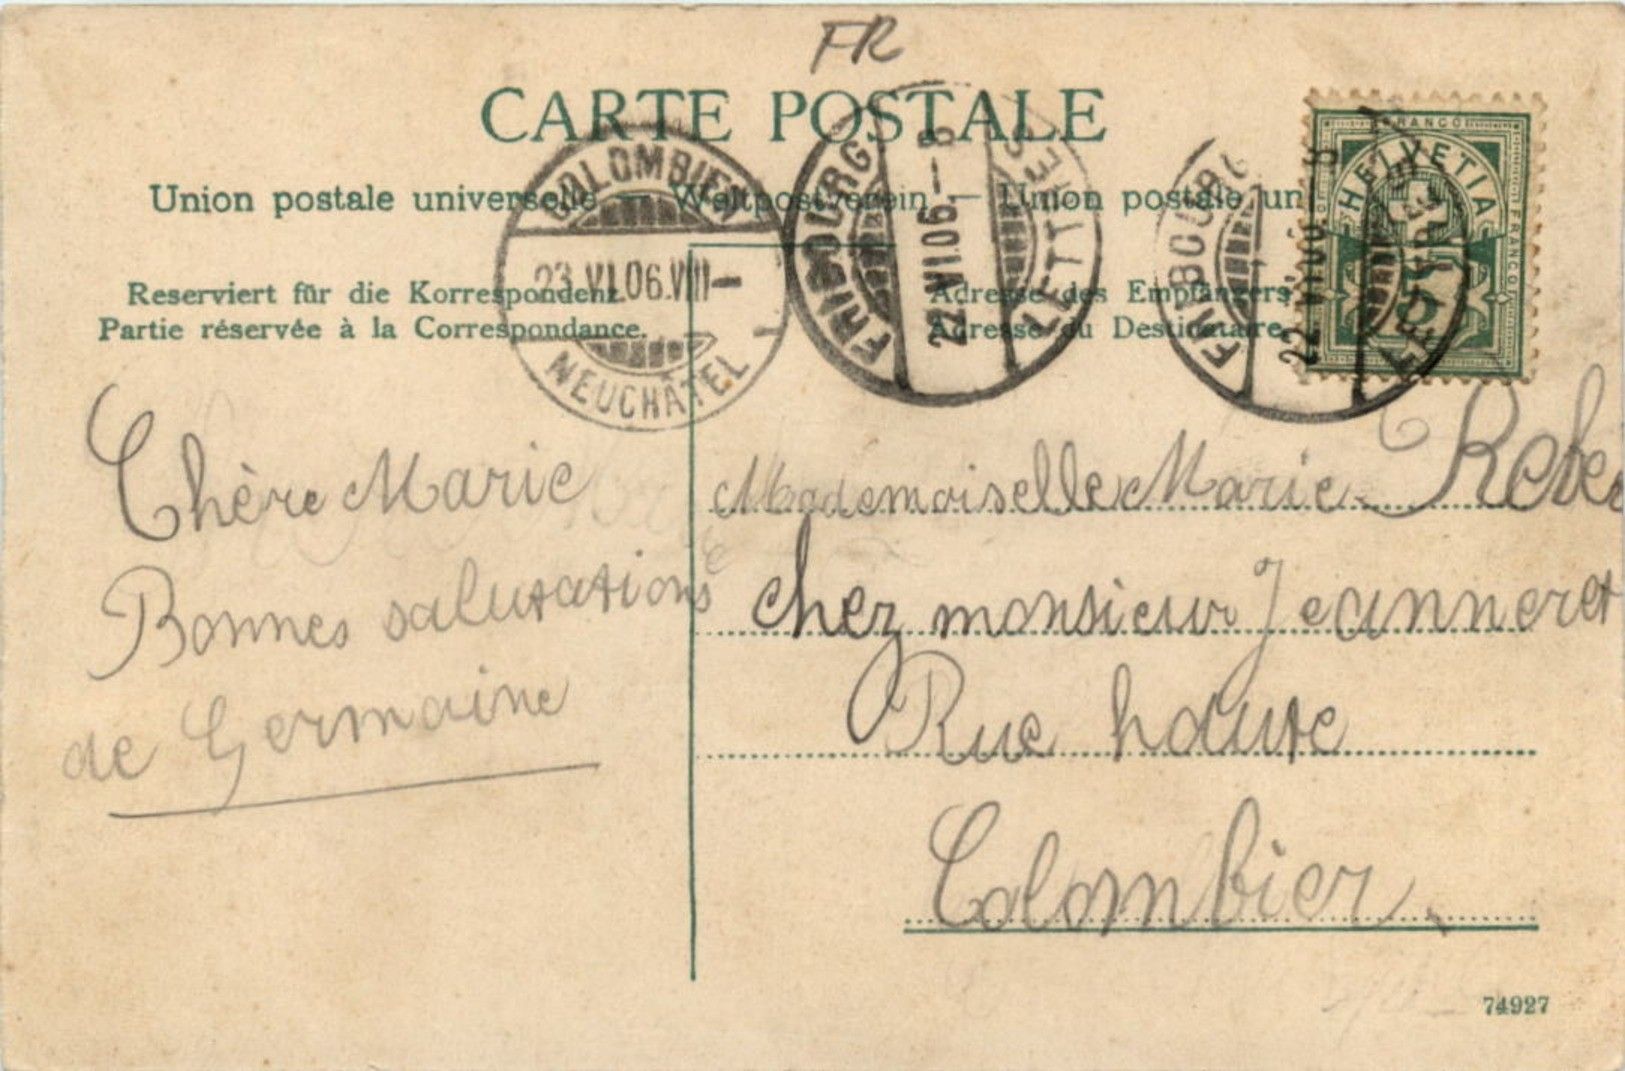 FR
CARTE POSTALE
Union postale universelle — Weltpostverein — Union postale un
Reserviert für die Korrespondenz
Partie réservée à la Correspondance.
Adresse des Empfängers
Adresse du Destinataire
COLOMBIER
23.VI.06.VIII—
NEUCHÂTEL
FRIBOURG
22.VI.06.—8
LETTRES
FRIBOURG
22.VI.06.—8
LETTRES
FRANCO
HELVETIA
FRANCO
5
Chère Marie
Bonnes salutations
de Germaine
Mademoiselle Marie Reber
chez monsieur Jeanneret
Rue haute
Colombier
74927